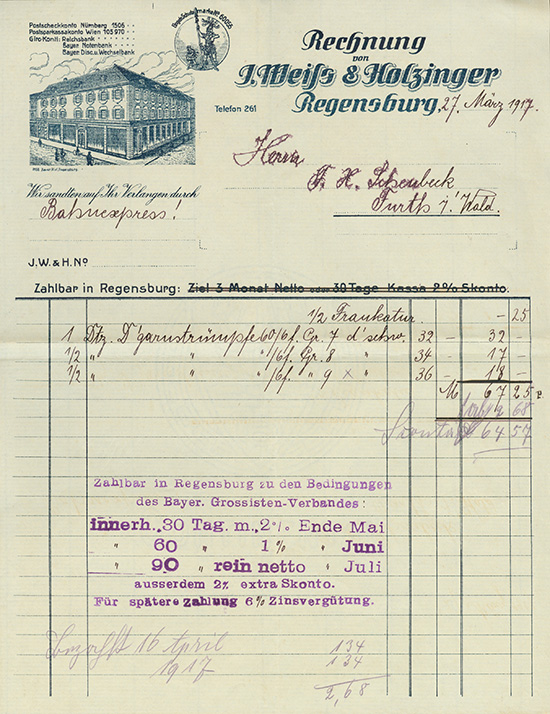 Postscheckkonto Nürnberg 1506
Postsparkassakonto Wien 105970
Giro Konti: Reichsbank
Bayer. Notenbank
Bayer. Disc. u. Wechselbank
Rechnung
von
J. Weiss & Holzinger
Regensburg, 27. März 1917.
Telefon 261
Herrn
F. X. Schenbeck
Furth i/ Wald.
Wir sandten auf Ihr Verlangen durch
Bahnexpress!
J.W. & H. No
Zahlbar in Regensburg: Ziel 3 Monat Netto oder 30 Tage Kassa 2% Skonto.
1/2 Frankatur. — 25
1 Dtz. D'garnstrümpfe 60/6f. Gr. 7 d' schw. 32 — 32 —
1/2 " " " 1/6f. Gr. 8 " 34 — 17 —
1/2 " " " 1/6f. " 9 × " 36 — 18 —
M 67 25 P.
2 68
64 57
Zahlbar in Regensburg zu den Bedingungen
des Bayer. Grossisten-Verbandes:
innerh. 30 Tag. m. 2% Ende Mai
" 60 " 1% " Juni
" 90 " rein netto " Juli
ausserdem 2% extra Skonto.
Für spätere Zahlung 6% Zinsvergütung.
Bezahlt 16 April 134
1917 134
2,68